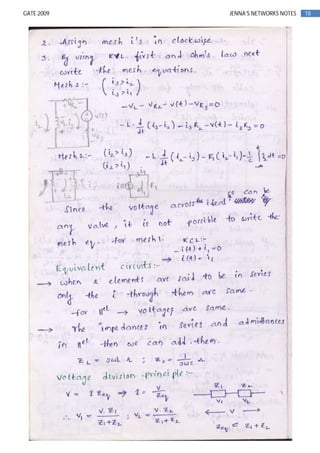 GATE 2009
JENNA'S NETWORKS NOTES 18
2. Assign mesh i's in clockwise.
3. By using KVL first and ohm's law next
write the mesh equations.
Mesh 3:- (i3>i2)
(i3>i1)
-VL - VR2 - v(t) - VR3 = 0
-L·d/dt (i3-i2) - i3R2 - v(t) - i3R3 = 0
Mesh 2:- (i2>i3)
(i2>i1)
-L·d/dt (i2-i3) - R1(i2-i1) - 1/C ∫i2dt = 0
Since the voltage across the ideal can be
any value, it is not possible to write the
mesh eq. for mesh 1:
KCL:-
-i(t)+i1=0
⇒ i(t) = i1
Equivalent circuits:-
→ when 2 elements are said to be in series
only the i through them are same.
-for llel → voltages are same.
→ The impedances in series and admittances
in llel then we can add them.
ZL = jωL Ω ; Zc = 1/jωc Ω
Voltage division principle:-
V = I Zeq ⇒ I = V/Zeq
∴ V1 = V·Z1/Z1+Z2 ; V2 = V·Z2/Z1+Z2
Z1 Z2
V1 V2
← V →
Zeq = Z1+Z2